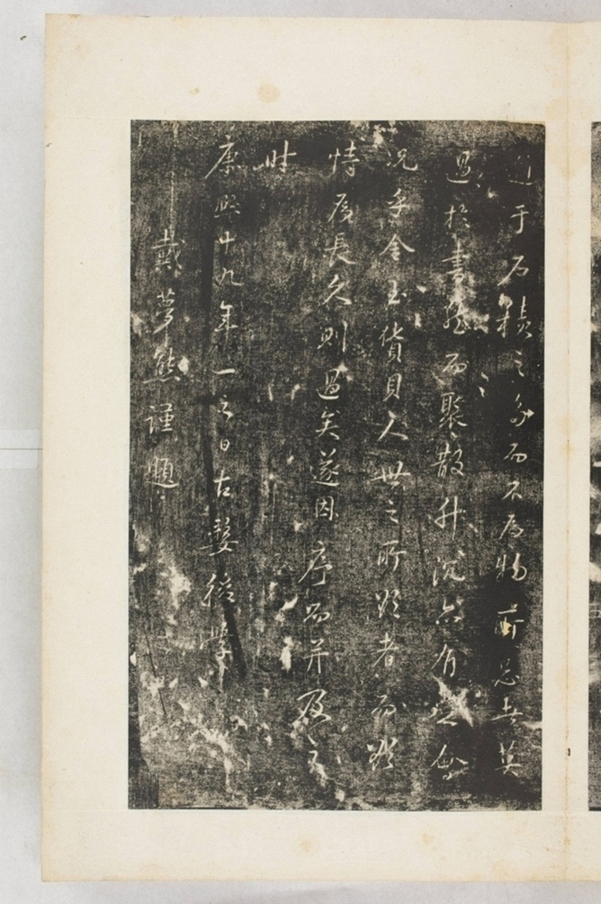 于石積之多而不爲物所忌者莫
過於書然而聚散升沉亦有會
况乎金玉貨貝人世之所者而
恃爲長久則過矣遂因序而并及之
時
康熙十九年一之日古婺後學
戴夢熊謹題